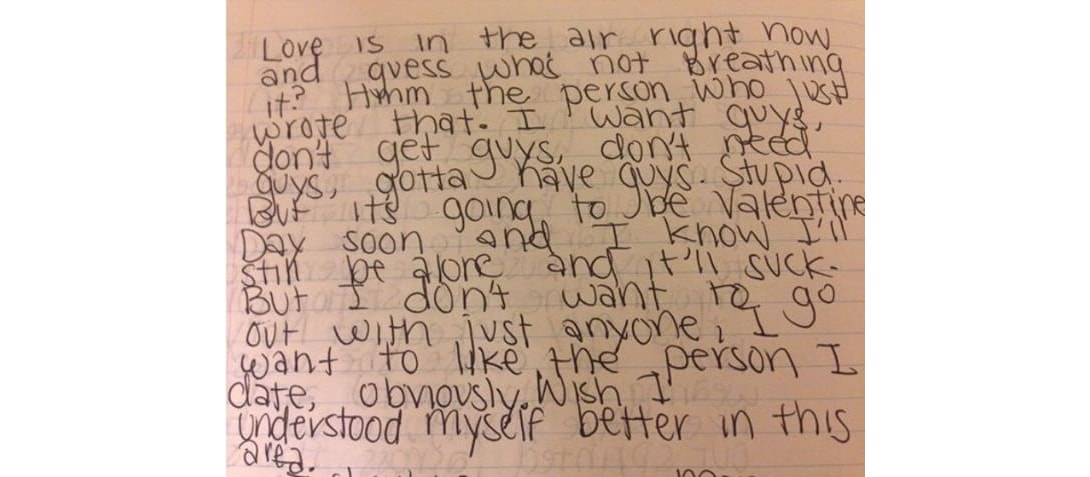 Love is in the air right now
and guess who's not breathing
it? Hmm the person who just
wrote that. I want guys,
don't get guys, don't need
guys, gotta have guys. Stupid.
But it's going to be Valentine
Day soon and I know I'll
still be alone and it'll suck.
But I don't want to go
out with just anyone, I
want to like the person I
date, obviously. Wish I
understood myself better in this
area.